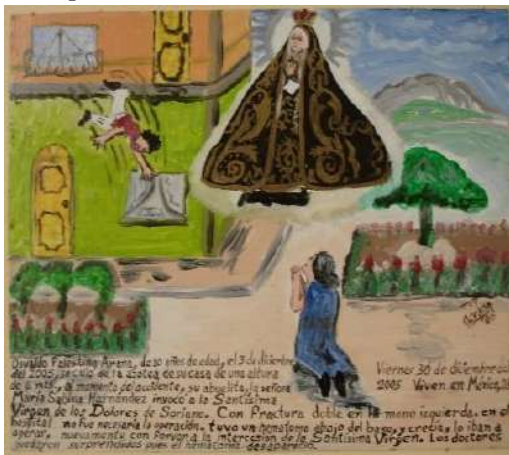 Osvaldo Palestino Arana, de 10 años de edad, el 3 de diciembre
del 2005, se calo de la azotea de su casa de una altura
de 6 mts, al momento del accidente, su abuelita, la señora
María Sabina Hernández invocó a la Santísima
Virgen de los Dolores de Soriano. Con Fractura doble en la mano izquierda, en el
hospital no fue necesaria la operación, tuvo un hematoma abajo del baso, y crecia, lo iban a
operar, nuevamente con fervor a la intercesion de la Santísima Virgen. Los doctores
quedaron surprendidos pues el hematoma desaparecio.
Viernes 30 de diciembre
2005 Viven en México,